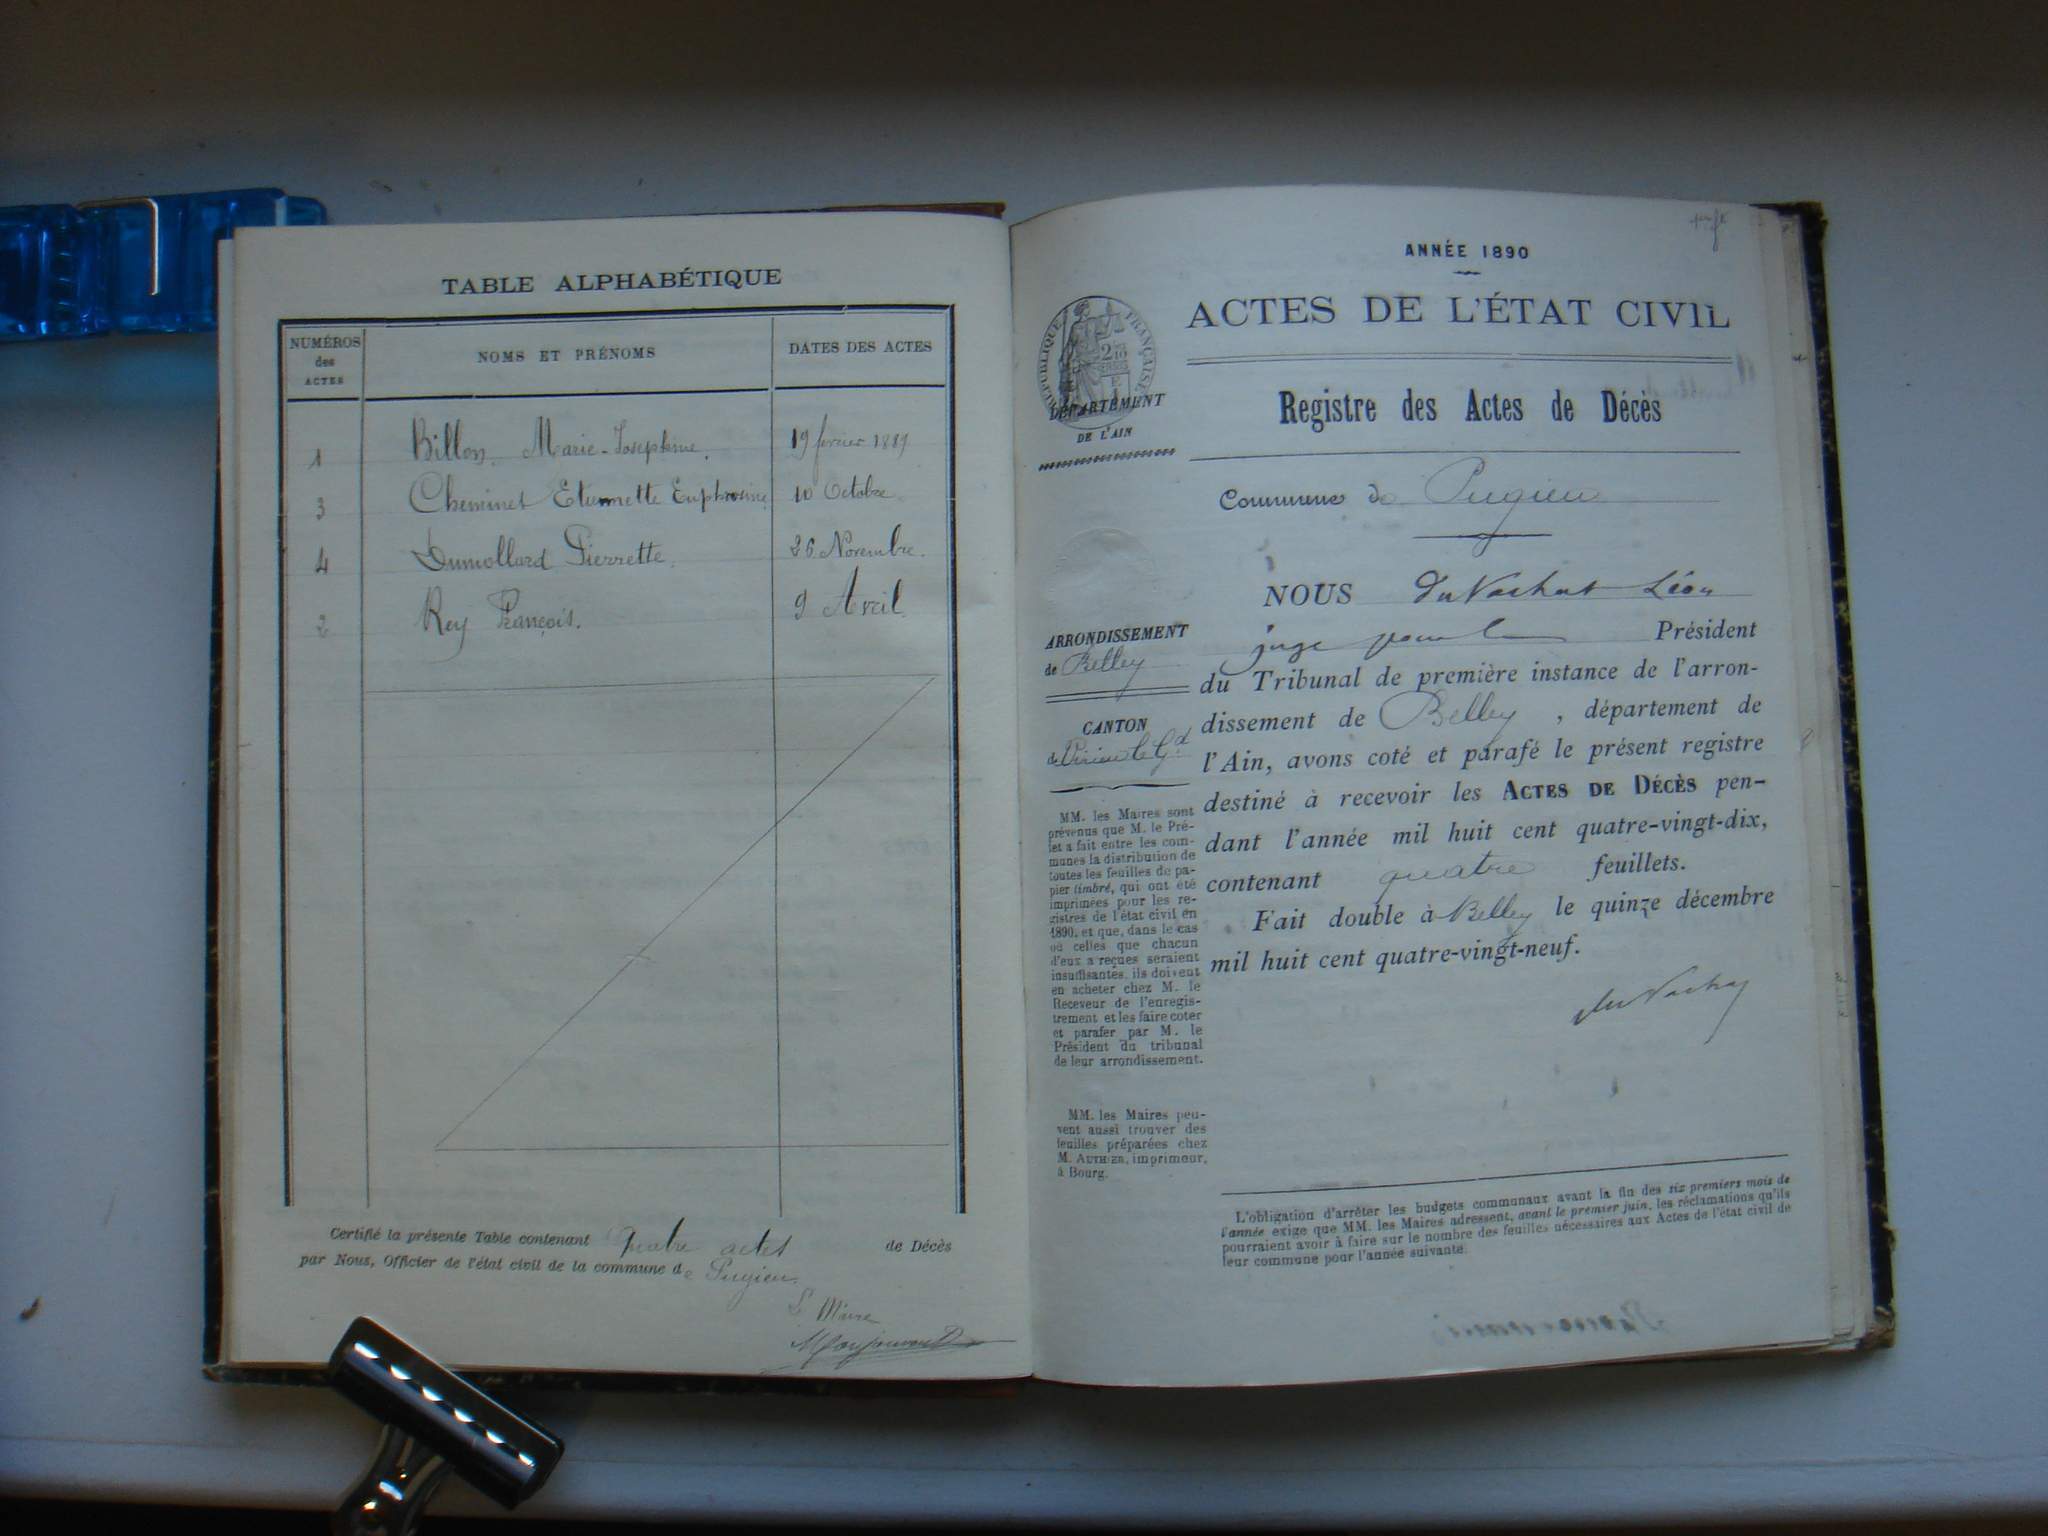 TABLE ALPHABÉTIQUE
NUMÉROS des ACTES
NOMS ET PRÉNOMS
DATES DES ACTES
1 Billon Marie-Josephine. 19 fevrier 1889
3 Cheminet Etiennette Euphrosine 10 Octobre
4 Dumollard Pierrette. 26 Novembre.
2 Rey François. 9 Avril
Certifié la présente Table contenant quatre actes de Décès
par Nous, Officier de l'état civil de la commune de Pugieu.
Le Maire
ANNÉE 1890
ACTES DE L'ÉTAT CIVIL
RÉPUBLIQUE FRANÇAISE
DÉPARTEMENT
DE L'AIN
Registre des Actes de Décès
Commune de Pugieu
ARRONDISSEMENT
de Belley
CANTON
de Virieu le Gd
MM. les Maires sont
prévenus que M. le Pré-
fet a fait entre les com-
munes la distribution de
toutes les feuilles de pa-
pier timbré, qui ont été
imprimées pour les re-
gistres de l'état civil en
1890, et que, dans le cas
où celles que chacun
d'eux a reçues seraient
insuffisantes, ils doivent
en acheter chez M. le
Receveur de l'enregis-
trement et les faire coter
et parafer par M. le
Président du tribunal
de leur arrondissement.
MM. les Maires peu-
vent aussi trouver des
feuilles préparées chez
M. AUTHIER, imprimeur,
à Bourg.
NOUS du Vachat Léon
juge pour le Président
du Tribunal de première instance de l'arron-
dissement de Belley, département de
l'Ain, avons coté et parafé le présent registre
destiné à recevoir les ACTES DE DÉCÈS pen-
dant l'année mil huit cent quatre-vingt-dix,
contenant quatre feuillets.
Fait double à Belley le quinze décembre
mil huit cent quatre-vingt-neuf.
du Vachat
L'obligation d'arrêter les budgets communaux avant la fin des six premiers mois de
l'année exige que MM. les Maires adressent, avant le premier juin, les réclamations qu'ils
pourraient avoir à faire sur le nombre des feuilles nécessaires aux Actes de l'état civil de
leur commune pour l'année suivante.